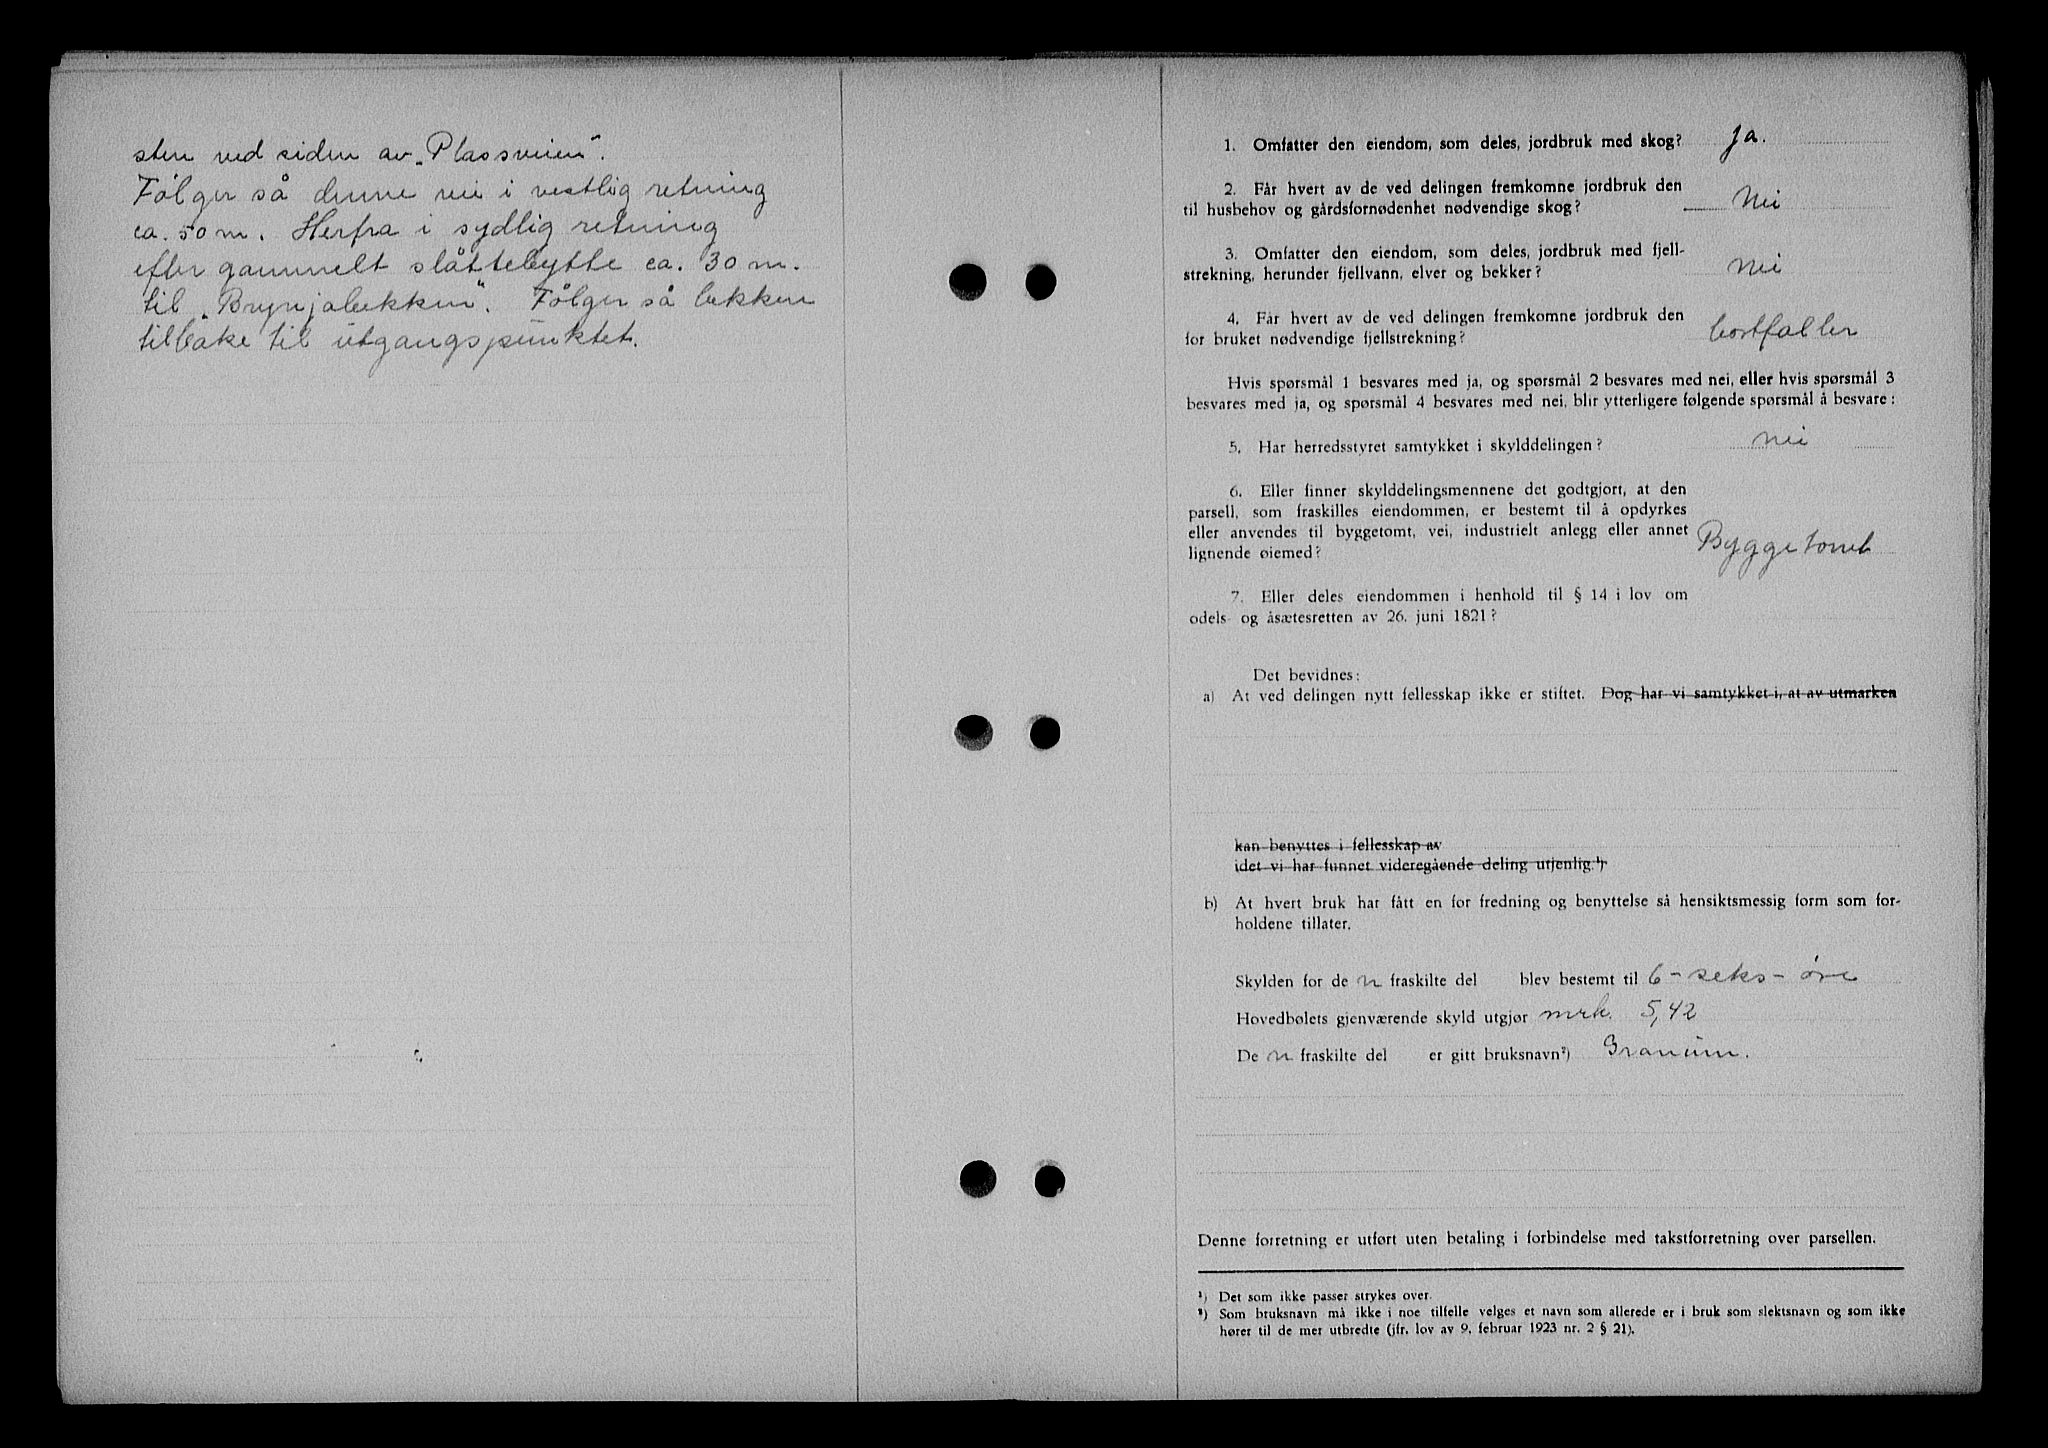 sten ved siden av „Plassveien".
Følger så denne vei i vestlig retning
ca. 50 m. Herfra i sydlig retning
efter gammelt slåttebytte ca. 30 m.
til „Brynjabekken". Følger så bekken
tilbake til utgangspunktet.
1. Omfatter den eiendom, som deles, jordbruk med skog? ja.
2. Får hvert av de ved delingen fremkomne jordbruk den
til husbehov og gårdsfornødenhet nødvendige skog? Nei
3. Omfatter den eiendom, som deles, jordbruk med fjell-
strekning, herunder fjellvann, elver og bekker? nei
4. Får hvert av de ved delingen fremkomne jordbruk den
for bruket nødvendige fjellstrekning? bortfaller
Hvis spørsmål 1 besvares med ja, og spørsmål 2 besvares med nei, eller hvis spørsmål 3
besvares med ja, og spørsmål 4 besvares med nei, blir ytterligere følgende spørsmål å besvare:
5. Har herredsstyret samtykket i skylddelingen? nei
6. Eller finner skylddelingsmennene det godtgjort, at den
parsell, som fraskilles eiendommen, er bestemt til å opdyrkes
eller anvendes til byggetomt, vei, industrielt anlegg eller annet
lignende øiemed? Byggetomt
7. Eller deles eiendommen i henhold til § 14 i lov om
odels- og åsætesretten av 26. juni 1821?
Det bevidnes:
a) At ved delingen nytt fellesskap ikke er stiftet. Dog har vi samtykket i, at av utmarken
kan benyttes i fellesskap av
idet vi har funnet videregående deling utjenlig.¹)
b) At hvert bruk har fått en for fredning og benyttelse så hensiktsmessig form som for-
holdene tillater.
Skylden for de n fraskilte del blev bestemt til 6 - seks - øre
Hovedbølets gjenværende skyld utgjør mrk. 5,42
De n fraskilte del er gitt bruksnavn²) Granum.
Denne forretning er utført uten betaling i forbindelse med takstforretning over parsellen.
¹) Det som ikke passer strykes over.
²) Som bruksnavn må ikke i noe tilfelle velges et navn som allerede er i bruk som slektsnavn og som ikke
hører til de mer utbredte (jfr. lov av 9. februar 1923 nr. 2 § 21).